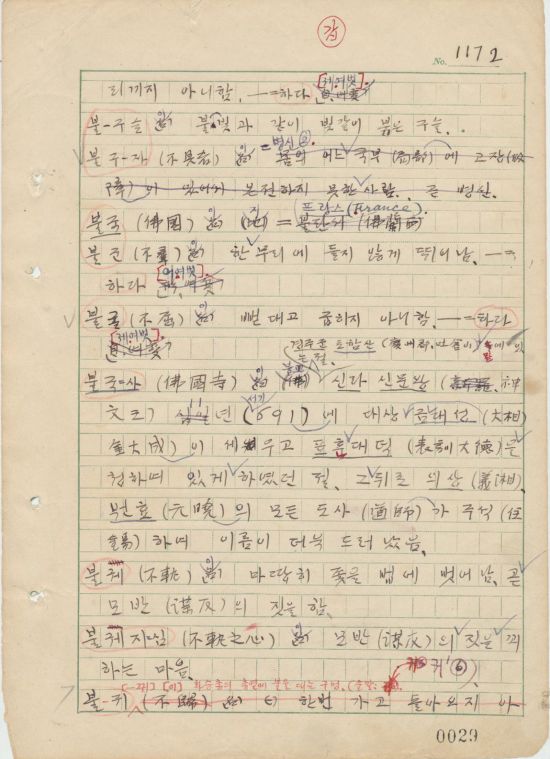 감
No. 1172
리끼지 아니함. ―하다 [제여벗]
불-구슬 (이) 불빛과 같이 빛같이 붉은 구슬.
불구-자 (不具者) (이) =병신②. 몸의 어느 국부 (局部)에 고장(故
障)이 있어서 온전하지 못한 사람. 곧 병신.
불국 (佛國) (이) (지) = 프랑스 (France). 불란서 (佛蘭西)
불군 (不羣) (이) 한 무리에 들지 않게 뛰어남. ―
하다 [어여벗]
불굴 (不屈) (이) 뻗대고 굽하지 아니함. ―하다
[제여벗]
경주군 토함산
는 절.
불국-사 (佛國寺) (이) (불교) 신라 신문왕 (神
文王) 십이년 (691)에 대상 김대성 (大相
金大成)이 세우고 표훈대덕 (表訓大德)을
청하여 있게 하였던 절. 그 뒤로 의상 (義湘),
원효 (元曉)의 모든 도사 (道師)가 주석 (住
錫)하여 이름이 더욱 드러났음.
불궤 (不軌) (이) 마땅히 좇을 법에 벗어남. 곧
모반 (謀反)의 짓을 함.
불궤지심 (不軌之心) (이) 모반 (謀反)의 짓을 꾀
하는 마음.
불-귀 (不歸) (이) 한번 가고 돌아오지 아
0029